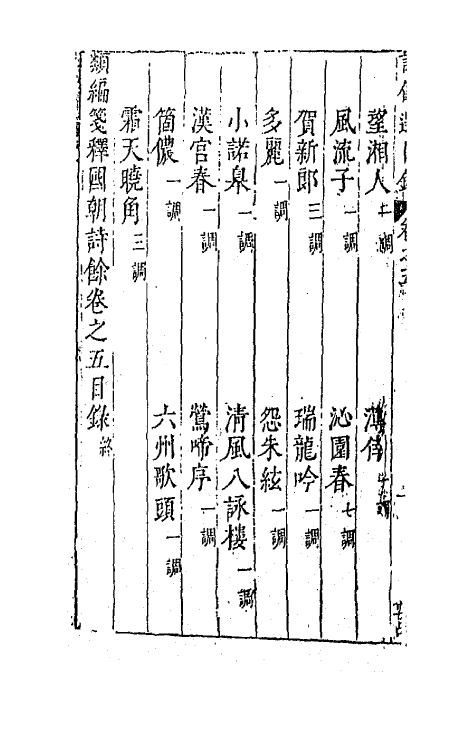 望湘人　調　薄倖
風流子一調　沁園春七調
賀新郎三調　瑞龍吟一調
多麗一調　怨朱絃一調
小諾臯一調　清風八詠樓一調
漢宮春一調　鶯啼序一調
箇儂一調　六州歌頭一調
霜天曉角三調
類編箋釋國朝詩餘卷之五目錄終